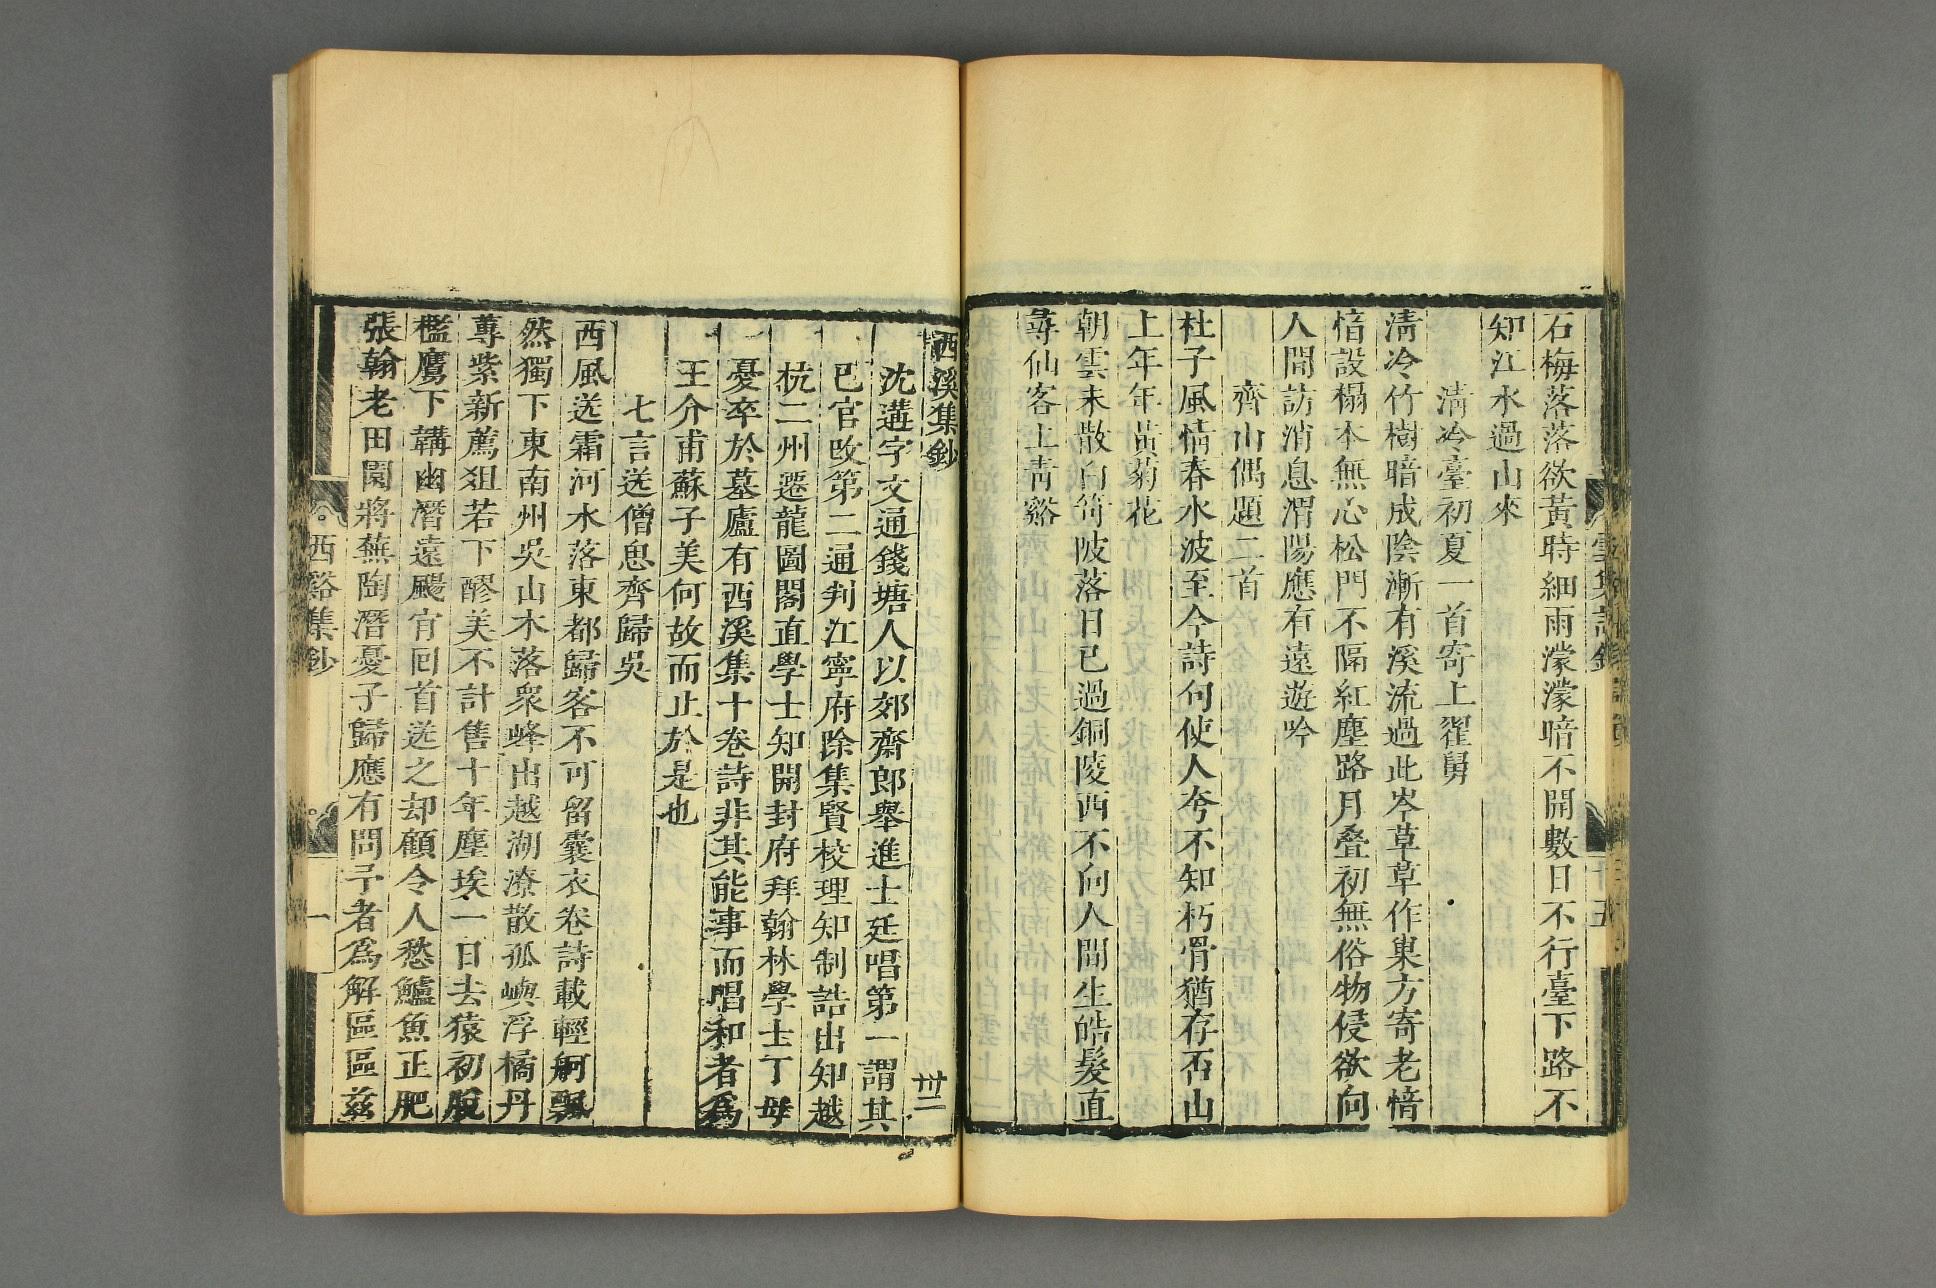 石梅落落欲黃時細雨濛濛暗不開數日不行臺下路不
知江水過山來
清冷臺初夏一首寄上翟舅
清冷竹樹暗成陰漸有溪流過此岑草草作巢方寄老愔
愔設榻本無心松門不隔紅塵路月叠初無俗物侵欲向
人間訪消息渭陽應有遠遊吟
齊山偶題二首
杜子風情春水波至今詩句使人夸不知朽骨猶存否山
上年年黃菊花
朝雲未散向笴陂落日已過銅陵西不向人間生皓髮直
尋仙客上靑谿
十五
西溪集鈔
卅二
沈遘字文通錢塘人以郊齋郎舉進士廷唱第一謂其
已官改第二通判江寧府除集賢校理知制誥出知越
杭二州遷龍圖閣直學士知開封府拜翰林學士丁母
憂卒於墓廬有西溪集十卷詩非其能事而唱和者爲
王介甫蘇子美何故而止於是也
七言送僧息齊歸吳
西風送霜河水落東都歸客不可留囊衣卷詩載輕舸飄
然獨下東南州吳山木落衆峰出越湖潦散孤嶼浮橘丹
蓴紫新薦俎若下醪美不計售十年塵埃一日去猿初脫
檻鷹下韝幽潛遠颺宵囘首送之却顧令人愁鱸魚正肥
張翰老田園將蕪陶潛憂子歸應有問予者爲解區區茲
西谿集鈔
一